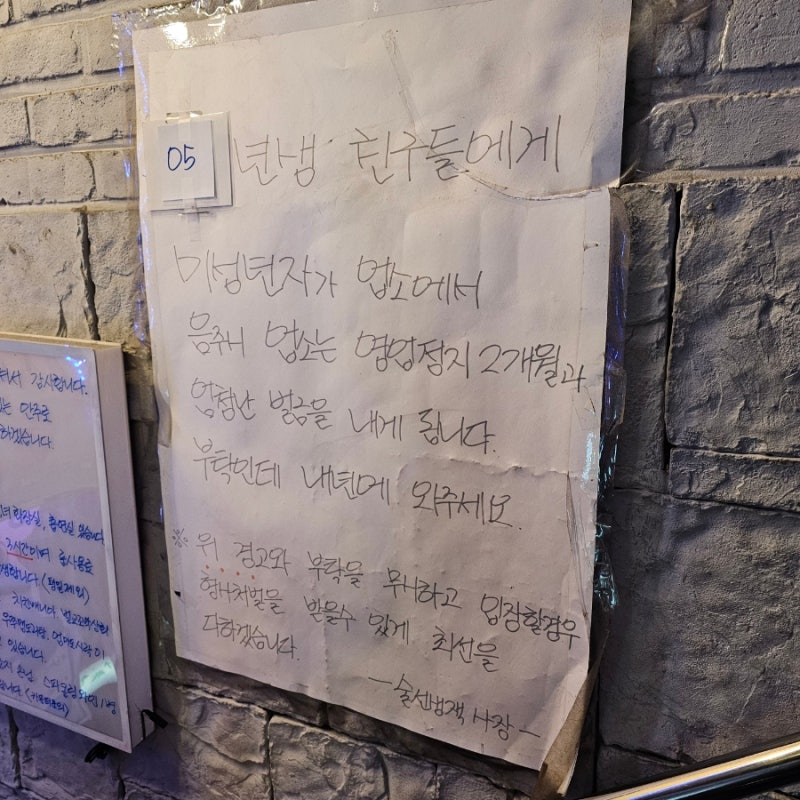 05 년생 친구들에게
미성년자가 업소에서
음주시 업소는 영업정지 2개월과
엄청난 벌금을 내게 됩니다.
부탁인데 내년에 와주세요.
※ 위 경고와 부탁을 무시하고 입장할경우
형사처벌을 받을수 있게 최선을
다하겠습니다.
- 술센생객 사장 -
셔서 감사합니다.
하겠습니다.
화장실, 흡연실 있습니다
3시간이며
(평일제외)
있습니다.